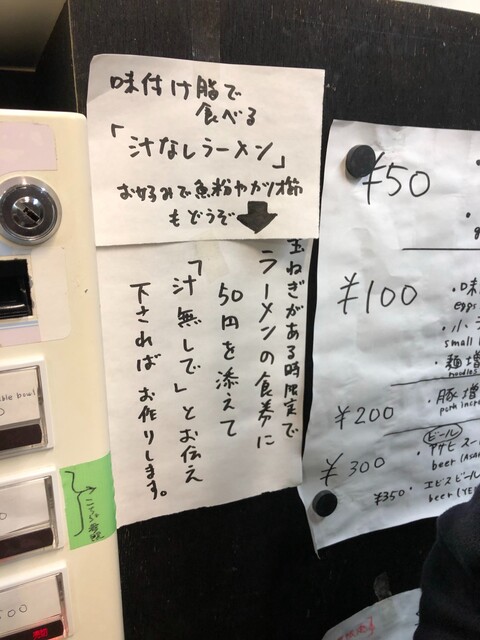 味付け脂で
食べる
「汁なしラーメン」
お好みで魚粉やカツオ節
もどうぞ
玉ねぎがある時限定で
ラーメンの食券に
50円を添えて
「汁無しで」とお伝え
下さればお作りします。
¥50
¥100
・味
eggs
・小ラ
small
・麺増
noodles
¥200
・豚増
pork incre
¥300
ビール
・アサヒスー
beer (ASA
¥350
・エビスビール
beer (YE
ble bowl
500